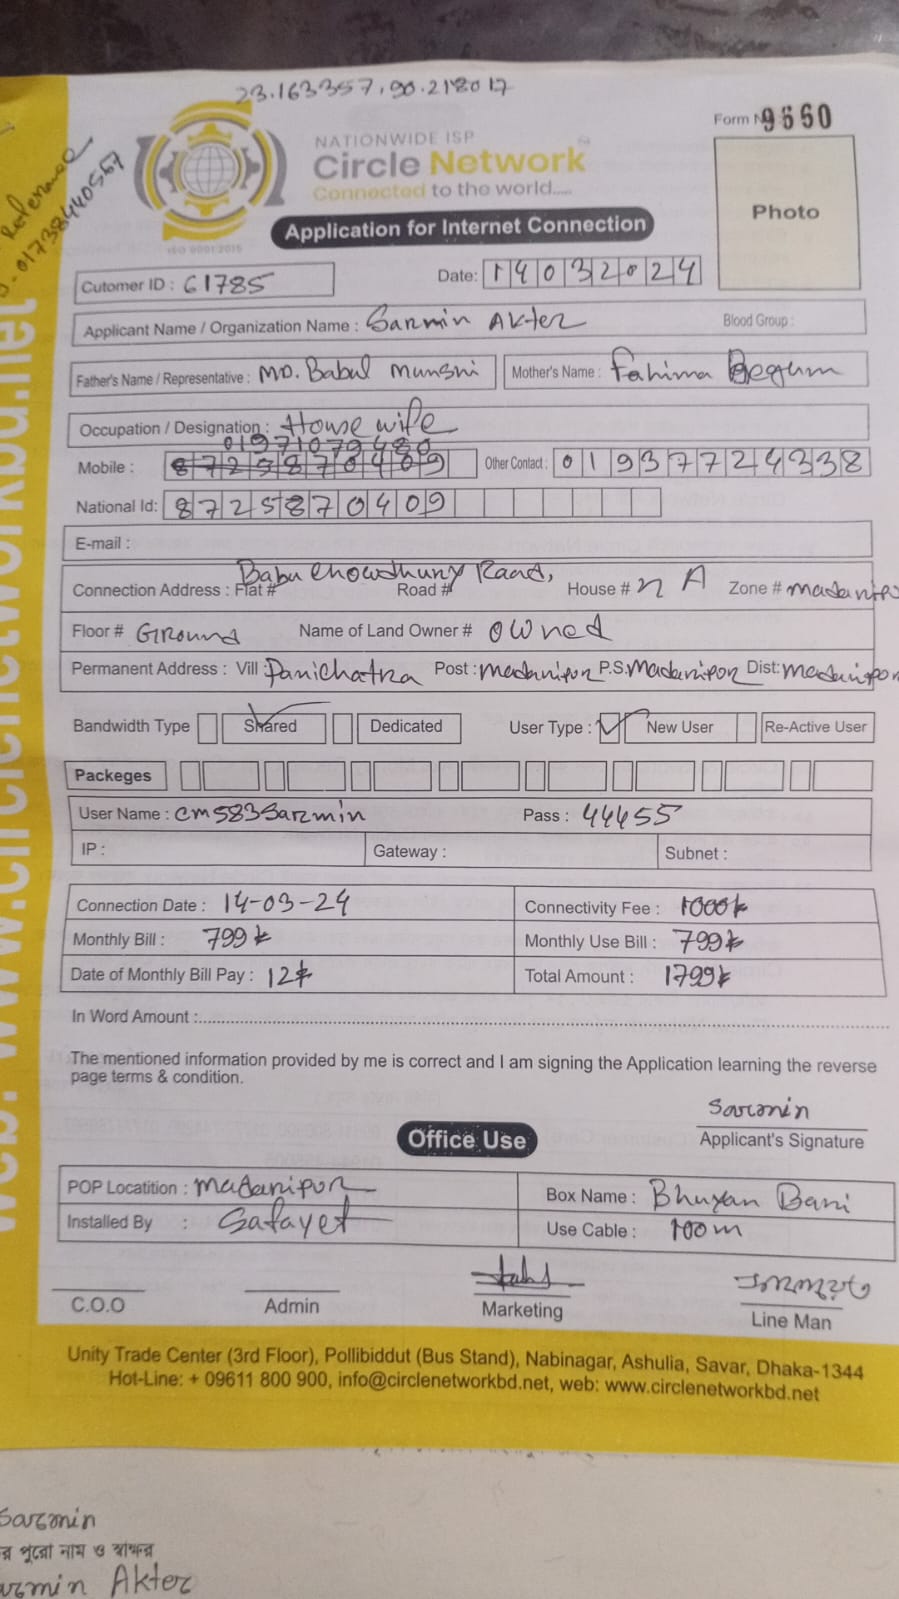 23.163357, 90.218017
Reference
01738440567
Form No 9660
NATIONWIDE ISP
Circle Network
Connected to the world.....
ISO 9001:2015
Photo
Application for Internet Connection
Cutomer ID : 61785 Date: 14032024
Applicant Name / Organization Name : Sarmin Akter Blood Group :
Father's Name / Representative : MD. Babul Munshi Mother's Name : Fahima Begum
Occupation / Designation : House wife
01971079480
Mobile : 8725870409 Other Contact : 01937724338
National Id: 8725870409
E-mail :
Babu Chowdhury Raad,
Connection Address : Flat # Road # House # n A Zone # madaripo
Floor # Ground Name of Land Owner # owned
Permanent Address : Vill Panichatra Post : madaripor P.S. Madaripor Dist: madaripor
Bandwidth Type Shared Dedicated User Type : New User Re-Active User
Packeges
User Name : cm583sarmin Pass : 44455
IP : Gateway : Subnet :
Connection Date : 14-03-24 Connectivity Fee : 1000
Monthly Bill : 799 Monthly Use Bill : 799
Date of Monthly Bill Pay : 12 Total Amount : 1799
In Word Amount :
The mentioned information provided by me is correct and I am signing the Application learning the reverse
page terms & condition.
Sarmin
Applicant's Signature
Office Use
POP Locatition : madaripur Box Name : Bhuyan Bari
Installed By : Safayet Use Cable : 100m
C.O.O Admin Marketing Line Man
Unity Trade Center (3rd Floor), Pollibiddut (Bus Stand), Nabinagar, Ashulia, Savar, Dhaka-1344
Hot-Line: + 09611 800 900, info@circlenetworkbd.net, web: www.circlenetworkbd.net
web: www.circlenetworkbd.net
Sarmin
র পুরো নাম ও স্বাক্ষর
armin Akter